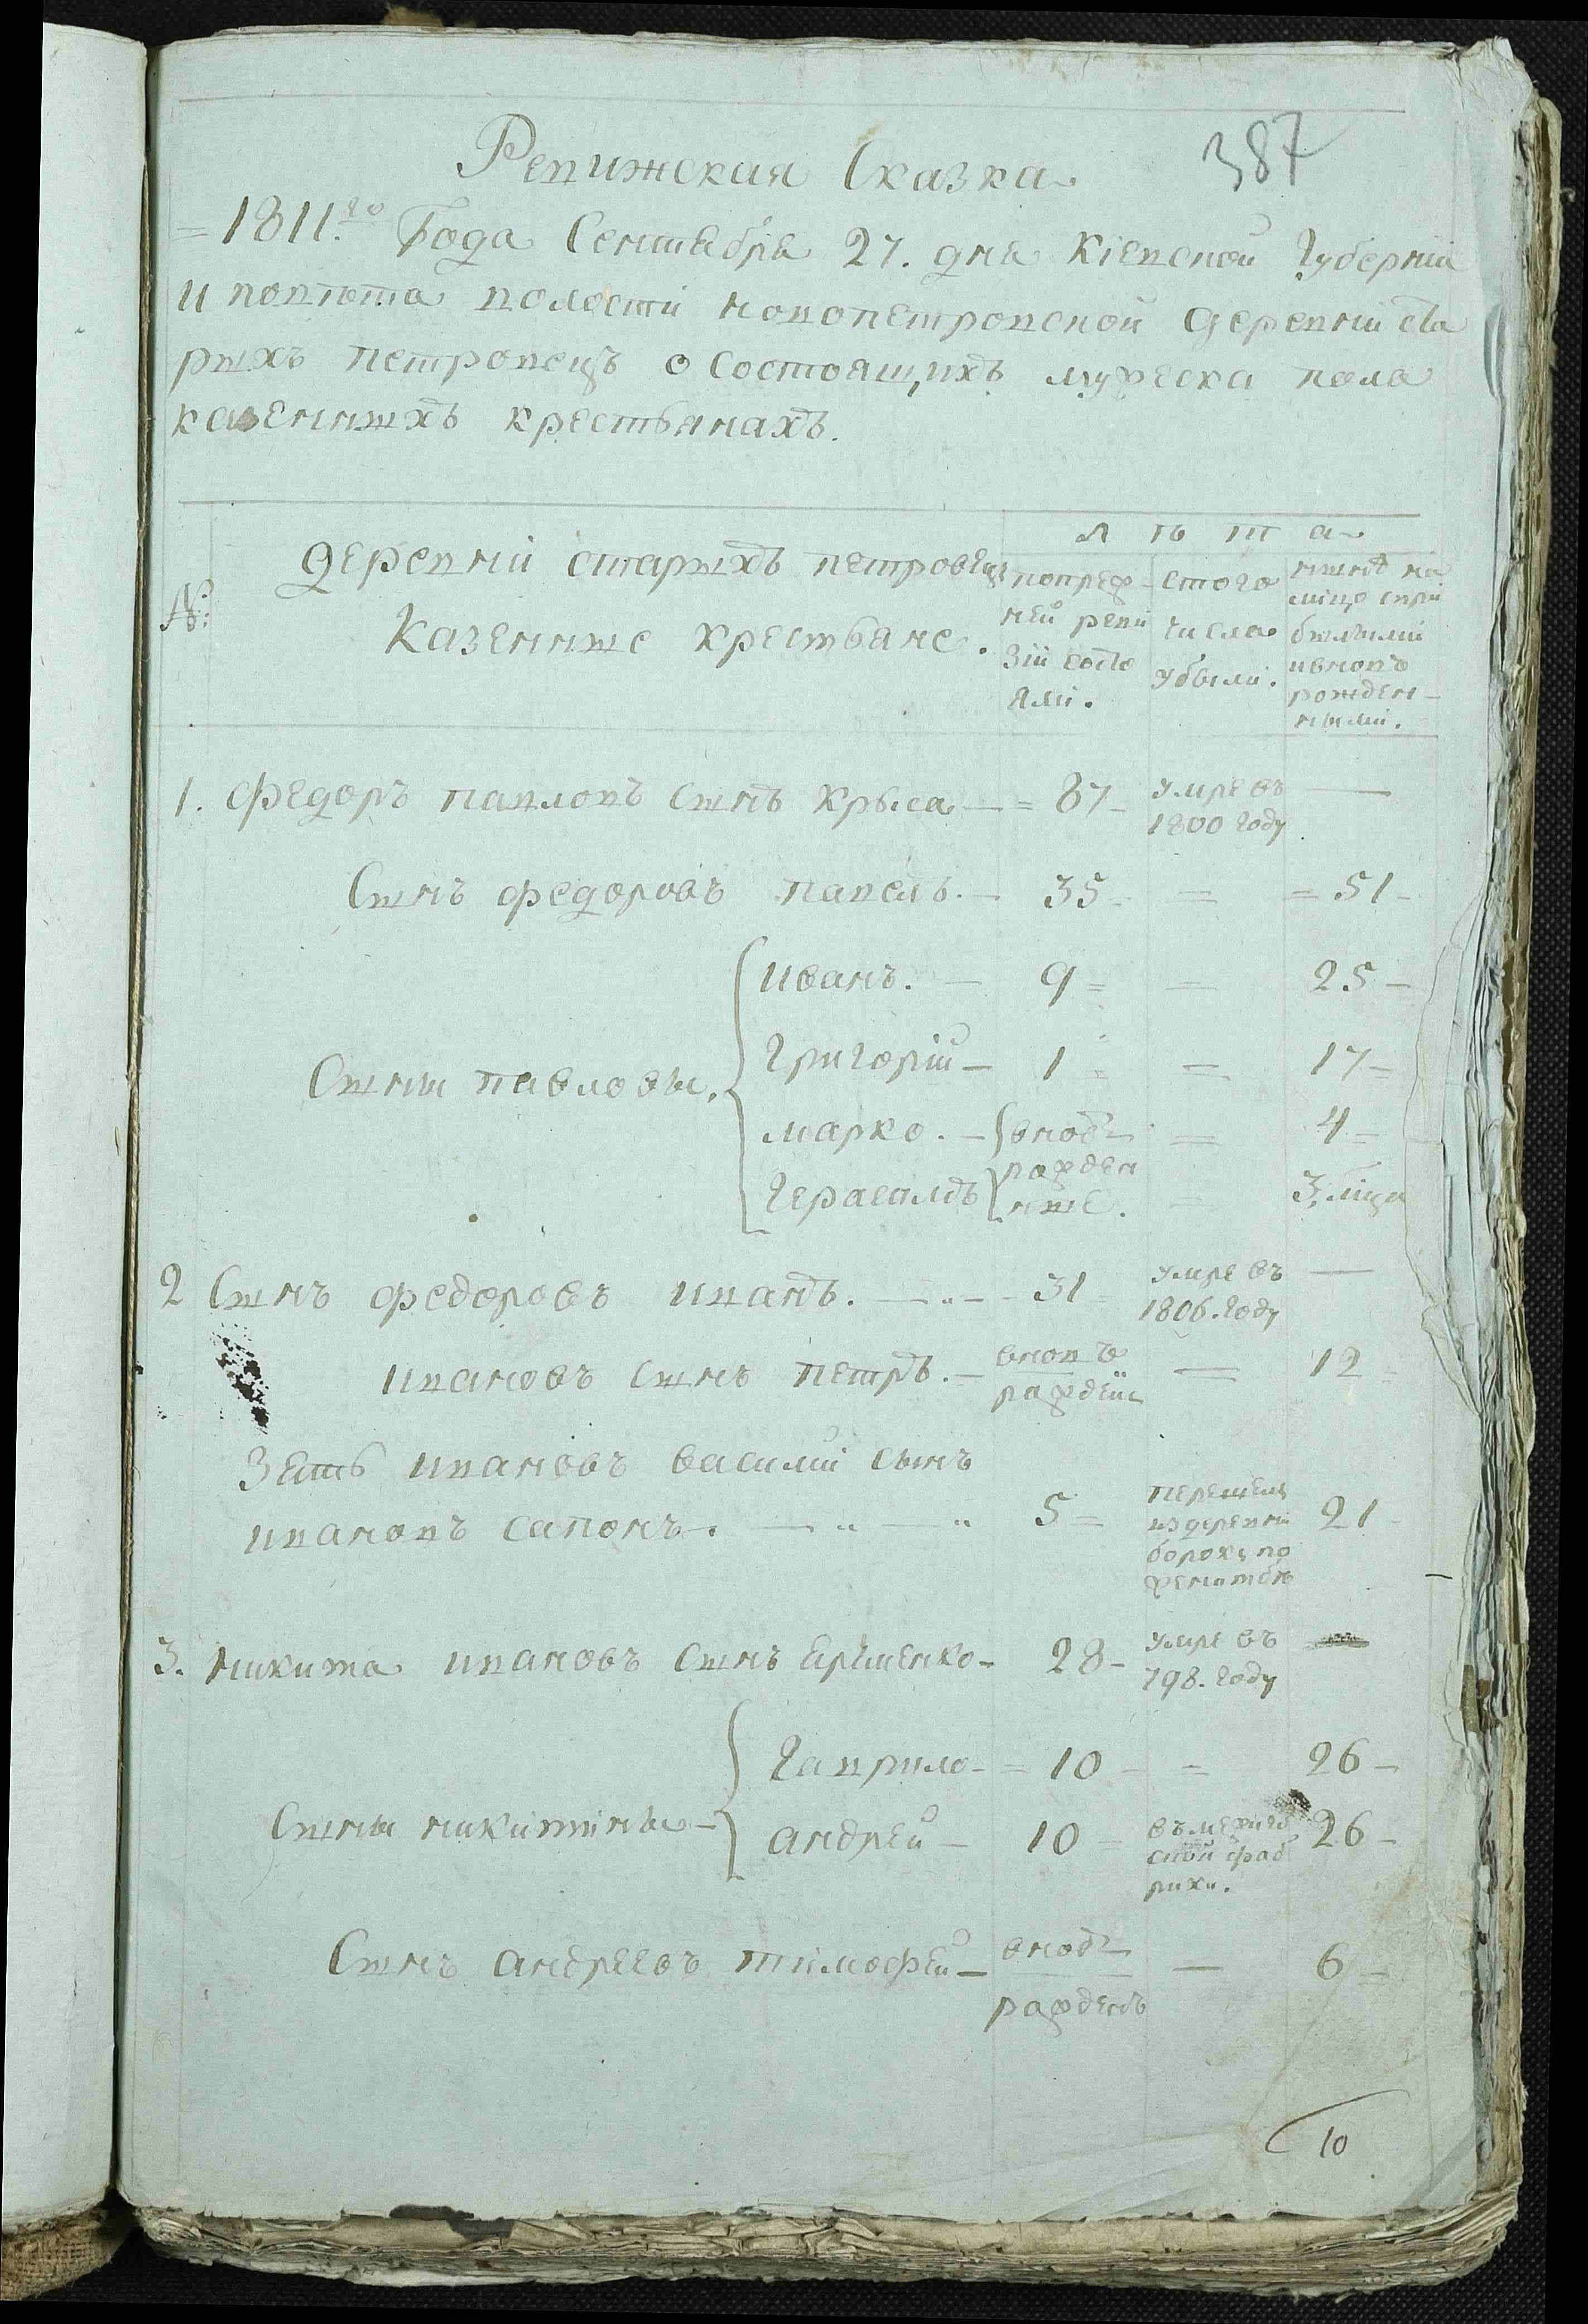 387
Ревижская Сказка
1811.го Года Сентября 27. дня Кіевской Губерніи
и повѣта волости новопетровской деревни ста
рыхъ петровецъ о состоящихъ мужеска пола
казенныхъ крестьянахъ.
№:
деревни старыхъ петровецъ
Казенные крестьяне.
Лѣта
по преж
ней реви
зіи состо
яли.
с того
числа
убыли.
нынѣ на
лицо съ при
былыми
и вновь
рожден-
ными.
1. Федоръ павловъ сынъ Крыса — 87 умре въ 1800 году —
Сынъ федоровъ павелъ. — 35 = 51
Сыны павловы.
иванъ. — 9 = 25
Григорій — 1 = 17
марко. — вновь = 4
Герасимъ рожденные. = 3 мца
2 Сынъ федоровъ иванъ. — 31 умре въ 1806. году —
ивановъ сынъ петръ. — вновь рожденъ — 12
Зять ивановъ василий сынъ
ивановъ сапонъ. — 5 = перешелъ из деревни 21
3. никита ивановъ сынъ Ярёменко — 28 — умре въ 798. году
Сыны никитины —
Гаврило — 10 = 26
андрей — 10 въ сной фабрики. 26
Сынъ андреевъ тимофей — вновь рожденъ — 6
10